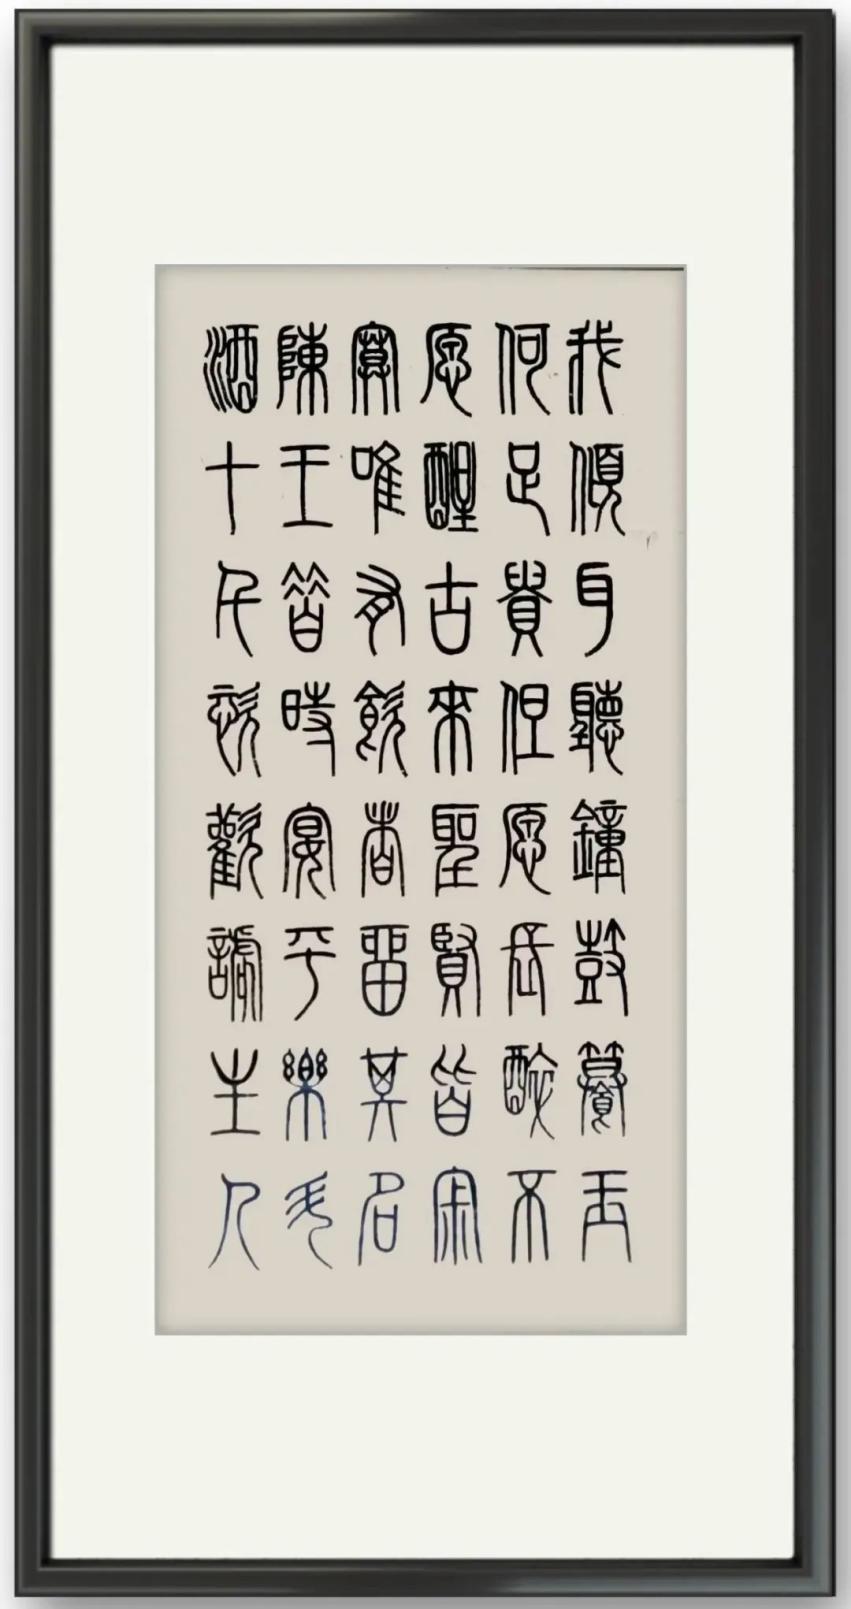 我傾耳聽鐘鼓饌玉
何足貴但愿長醉不
愿醒古來聖賢皆寂
寞唯有飲者留其名
陳王昔時宴平樂斗
酒十千恣歡謔主人